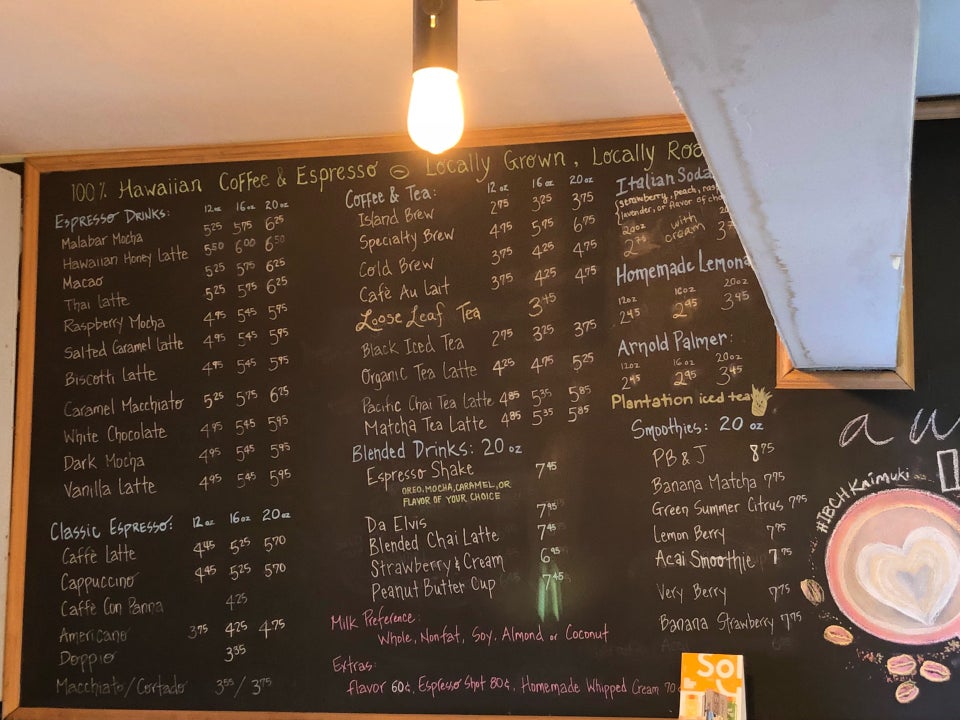 100% Hawaiian Coffee & Espresso Locally Grown, Locally Roa
Espresso Drinks: 12 oz 16 oz 20 oz
Malabar Mocha 5 25 5 75 6 25
Hawaiian Honey Latte 5 50 6 00 6 50
Macao 5 25 5 75 6 25
Thai Latte 5 25 5 75 6 25
Raspberry Mocha 4 95 5 45 5 95
Salted Caramel Latte 4 95 5 45 5 95
Biscotti Latte 4 95 5 45 5 95
Caramel Macchiato 5 25 5 75 6 25
White Chocolate 4 95 5 45 5 95
Dark Mocha 4 95 5 45 5 95
Vanilla Latte 4 95 5 45 5 95
Classic Espresso: 12 oz 16 oz 20 oz
Caffè Latte 4 45 5 25 5 70
Cappuccino 4 45 5 25 5 70
Caffè Con Panna 4 25
Americano 3 75 4 25 4 75
Doppio 3 35
Macchiato/Cortado 3 55 / 3 75
Coffee & Tea: 12 oz 16 oz 20 oz
Island Brew 2 75 3 25 3 75
Specialty Brew 4 75 5 75 6 75
Cold Brew 3 75 4 25 4 75
Cafè Au Lait 3 75 4 25 4 75
Loose Leaf Tea 3 45
Black Iced Tea 2 75 3 25 3 75
Organic Tea Latte 4 25 4 75 5 25
Pacific Chai Tea Latte 4 85 5 35 5 85
Matcha Tea Latte 4 85 5 35 5 85
Blended Drinks: 20 oz
Espresso Shake 7 45
OREO, MOCHA, CARAMEL, OR
FLAVOR OF YOUR CHOICE
Da Elvis 7 95
Blended Chai Latte 7 45
Strawberry & Cream 6 95
Peanut Butter Cup 7 45
Milk Preference:
Whole, Nonfat, Soy, Almond or Coconut
Extras:
flavor 60¢, Espresso Shot 80¢, Homemade Whipped Cream 70
Italian Soda
(strawberry, peach, rasp
lavender, or flavor of cho
20oz with
2 75 cream 3
Homemade Lemona
12oz 16oz 20oz
2 45 2 95 3 45
Arnold Palmer:
12oz 16 oz 20oz
2 45 2 95 3 45
Plantation iced tea
Smoothies: 20 oz
PB & J 8 75
Banana Matcha 7 75
Green Summer Citrus 7 75
Lemon Berry 7 75
Acai Smoothie 7 75
Very Berry 7 75
Banana Strawberry 7 75
aw
#IBCHKaimuki
Sol